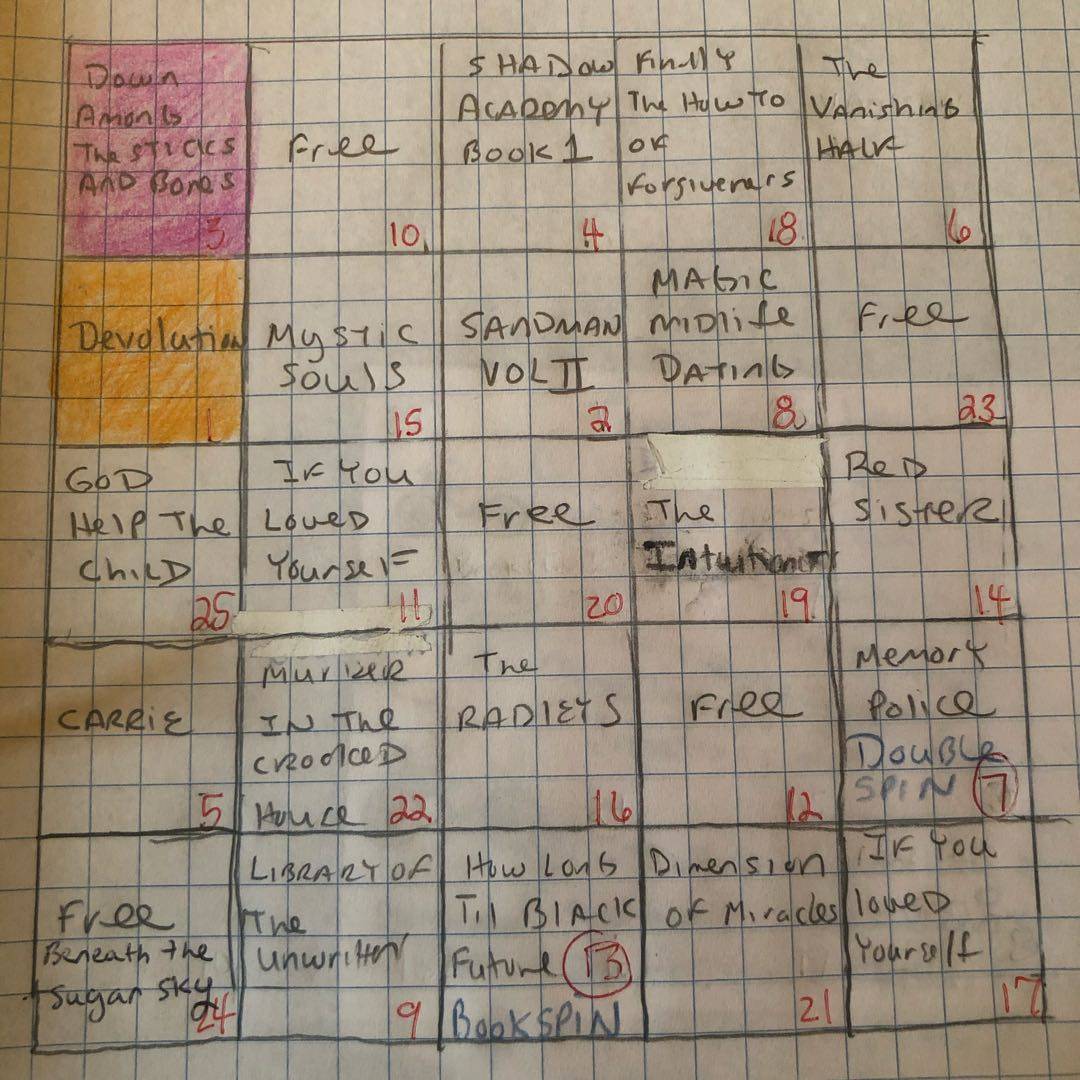 Down
Among
The STICKS
AND BONES
3
Free
10
SHADOW
ACADEMY
BOOK 1
4
Finlly
The How To
OF
Forgiveners
18
The
Vanishing
HALF
6
Devolution
1
Mystic
Souls
15
SANDMAN
VOL II
2
MAGIC
MIDLIFE
DATING
8
Free
23
GOD
HELP THE
CHILD
25
IF YOU
LOVED
YOURSELF
11
Free
20
The
Intuitionist
19
RED
SISTER
14
CARRIE
5
Murder
IN The
CROOKED
House 22
The
RADLEYS
16
Free
12
Memory
Police
DOUBLE
SPIN 7
Free
Beneath the
sugar sky
24
LIBRARY OF
The
Unwritten
9
How Long
Til BLACK
Future 13
BOOKSPIN
Dimension
OF Miracles
21
IF YOU
loved
Yourself
17